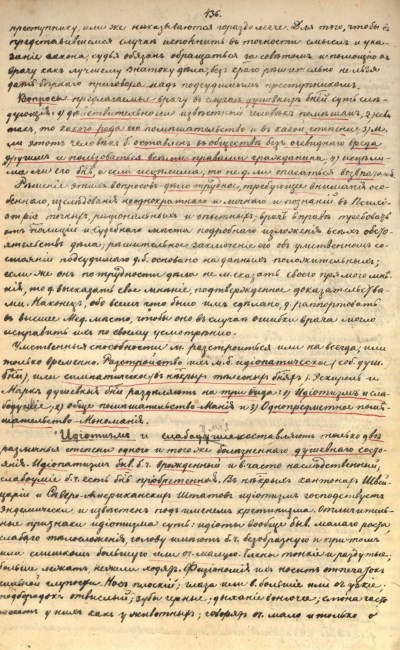 136.
преступнику, или же наказываются гораздо легче. Для того, чтобы въ
представившемся случаѣ исполнить въ точности смыслъ и ука-
заніе закона, судья обязанъ обращаться за совѣтомъ и помощію къ
врачу какъ лучшему знатоку дѣла; безъ врача рѣшительно нельзя
дать вѣрнаго приговора надъ подсудимымъ преступникомъ.
Вопросы предлагаемые врачу въ случаѣ душевныхъ бнѣй суть слѣ-
дующіе: 1) дѣйствительно извѣстно человѣкъ помѣшанъ; 2) если
такъ, то какого рода его помѣшательство и въ какой степени; 3) мо-
ли этотъ человѣкъ б. оставленъ въ обществѣ безъ очевиднаго вреда
другимъ и пользоваться всѣми правами гражданина; 4) исцѣли-
ма ли его бнь, и если исцѣлима, то не д. ли опасаться возвратовъ.
Рѣшеніе этихъ вопросовъ дѣло трудное, требующее вниманія осо-
беннаго, изслѣдованія неоднократнаго и личнаго и познаній въ Психі-
атріи точныхъ, раціональныхъ и опытныхъ; врачъ вправѣ требовать
отъ полиціи и судебнаго мѣста подробнаго изложенія всѣхъ обсто-
ятельствъ дѣла; рѣшительное заключеніе объ умственномъ со-
стояніи подсудимаго д. б. основано на данныхъ положительныхъ;
если же онъ по трудности дѣла не м. сказать своего прямого мнѣ-
нія, то д. высказать свое мнѣніе, подтвержденное доказательства-
ми. Наконецъ, обо всемъ что было имъ сдѣлано, д. рапортовать
въ высшее Мед. мѣсто, чтобы оно въ случаѣ ошибки врача могло
исправить ихъ по своему усмотрѣнію.
Умственныя способности м. разстроиться или на всегда, или
только временно. Разстройство ихъ м. б. идіопатическое (соб. душ.
бнѣй), или симпатическое въ нѣкрыхъ тѣлесныхъ бняхъ. Эскироль и
Маркъ душевныя бни раздѣляютъ на три вида: 1) Идіотизмъ и сла-
боуміе; 2) общее помѣшательство Манія и 3) Однопредметное помѣ-
шательство Мономанія.
Идіотизмъ и слабоуміе составляютъ только двѣ
различныя степени одного и того же болѣзненнаго душевнаго состо-
янія. Идіотизмъ бнв. б. ч. врожденный и часто наслѣдственный,
слабоуміе б. ч. есть бнь пріобрѣтенная. Въ нѣкрыхъ кантонахъ Швей-
царіи и Сѣверо-Американскихъ Штатовъ идіотизмъ господствуетъ
Эндемически и извѣстенъ подъ именемъ кретинизма. Отличитель-
ные признаки идіотизма суть: идіоты вообще бнв. малаго роста,
слабаго тѣлосложенія, голову имѣютъ б. ч. безобразную и при томъ
или слишкомъ большую или оч. малую. Члены тонкіе и раздутые,
больше лежатъ нежели ходятъ. Физіономія ихъ носитъ отпечатокъ
глупости. Носъ плоскій; глаза или оч. большіе или оч. узкіе,
подбородокъ отвислый; зубы черные, дыханіе вонючее; слюна часто
течетъ у нихъ какъ у животныхъ; говорятъ оч. мало и только о